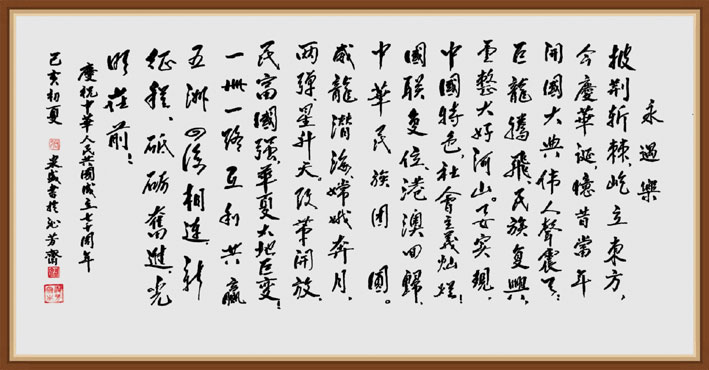 永遇樂
披荆斬棘,屹立東方,
今慶華誕,憶昔當年
開國大典偉人聲震天:
巨龍騰飛民族复興,
重整大好河山。实現,
中國特色社會主義燦爛!
國联复位,港澳回歸,
中華民族團圓。
威龍潜海,嫦娥奔月,
两彈星升天,改革開放,
民富國强,華夏大地巨變!
一带一路互利共赢
五洲四海相連新
征程、砥砺奮進,光
明在前!
慶祝中華人民共國成立七十周年
己亥初夏 盛書於沁芳齋